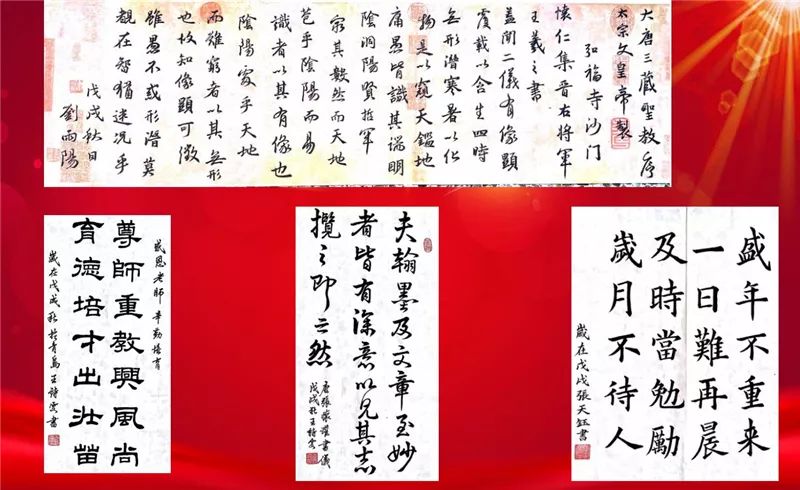 大唐三藏聖教序
太宗文皇帝製
弘福寺沙門
懷仁集晉右將軍
王羲之書
蓋聞二儀有像顯
覆載以含生四時
無形潛寒暑以化
物是以窺天鑑地
庸愚皆識其端明
陰洞陽賢哲罕
窮其數然而天地
苞乎陰陽而易
識者以其有像也
陰陽處乎天地
而難窮者以其無形
也故知像顯可徵
雖愚不惑形潛莫
覩在智猶迷況乎
戊戌秋日
劉雨陽
感恩老師辛勤培育
尊師重教興風尚
育德培才出壯苗
歲在戊戌秋於青島王詩雯書
夫翰墨及文章至妙
者皆有深意以見其志
攬之即了然
唐張懷瓘書儀
戊戌秋王詩雯
盛年不重来
一日難再晨
及時當勉勵
歲月不待人
歲在戊戌張天鈺書